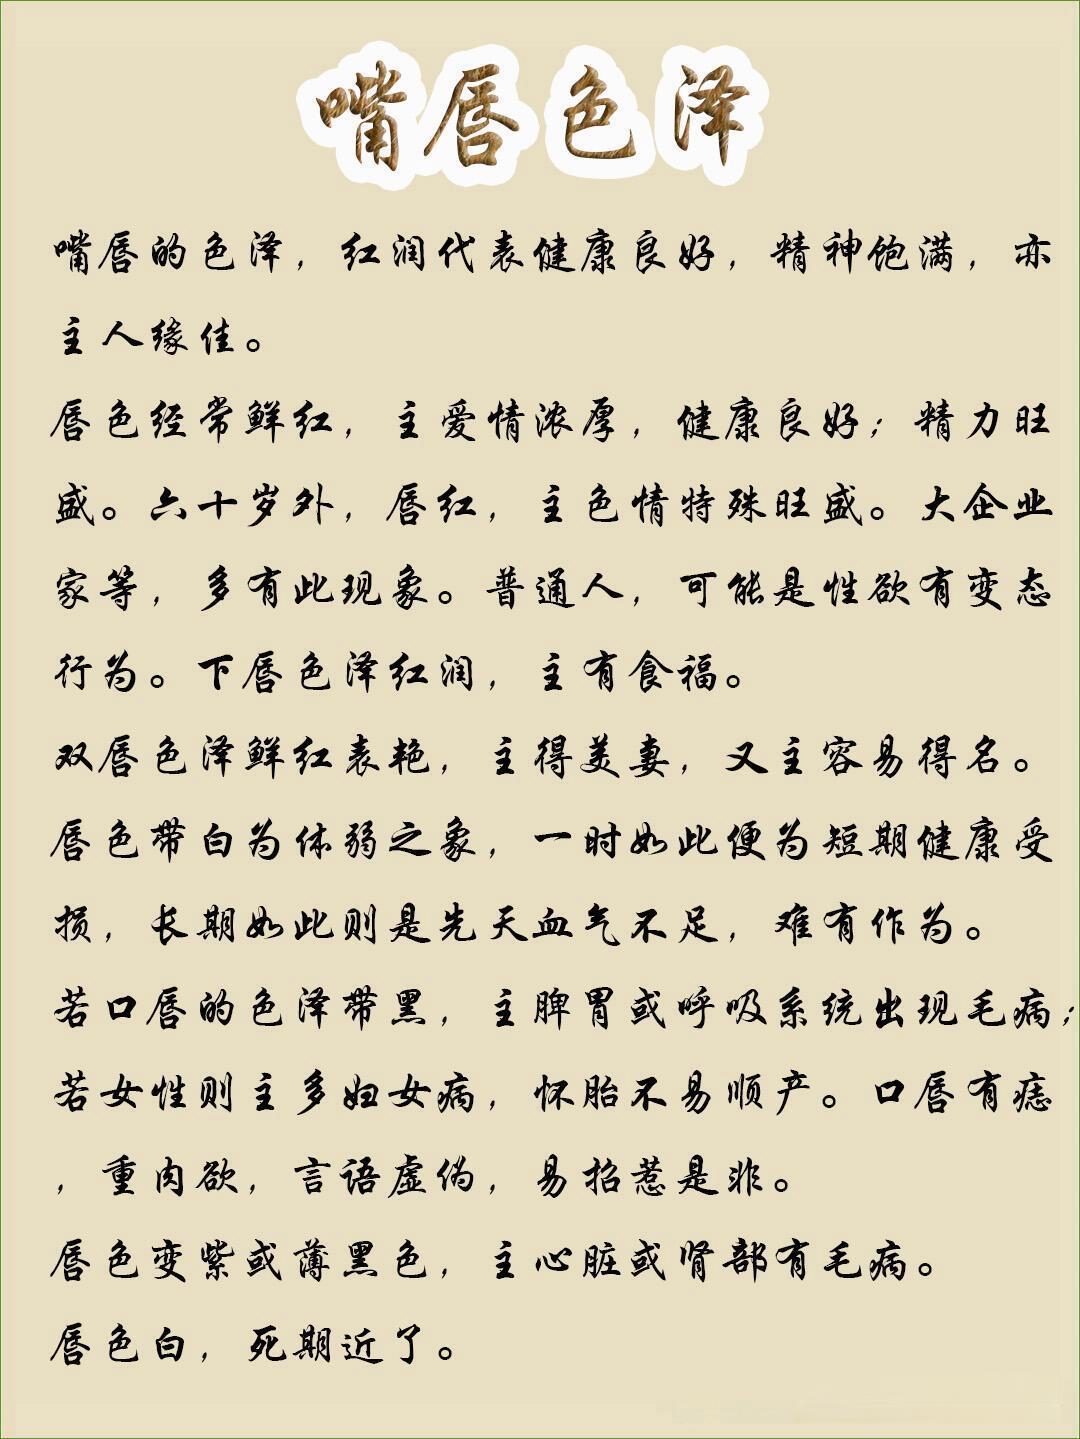 嘴唇色泽
嘴唇的色泽，红润代表健康良好，精神饱满，亦
主人缘佳。
唇色经常鲜红，主爱情浓厚，健康良好；精力旺
盛。六十岁外，唇红，主色情特殊旺盛。大企业
家等，多有此现象。普通人，可能是性欲有变态
行为。下唇色泽红润，主有食福。
双唇色泽鲜红表艳，主得美妻，又主容易得名。
唇色带白为体弱之象，一时如此便为短期健康受
损，长期如此则是先天血气不足，难有作为。
若口唇的色泽带黑，主脾胃或呼吸系统出现毛病；
若女性则主多妇女病，怀胎不易顺产。口唇有痣
，重肉欲，言语虚伪，易招惹是非。
唇色变紫或薄黑色，主心脏或肾部有毛病。
唇色白，死期近了。